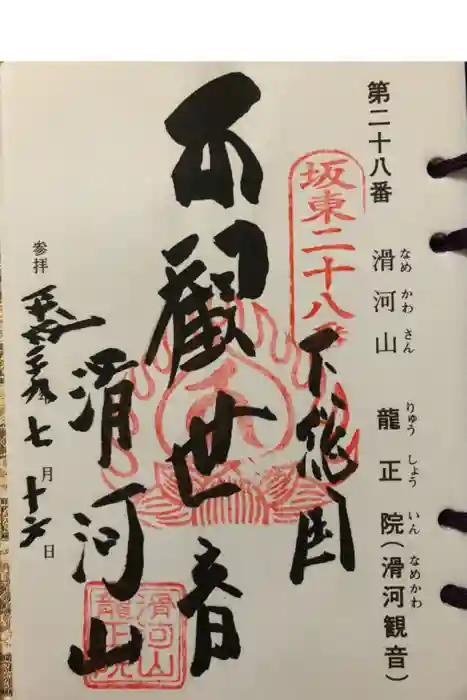 第二十八番 滑河山 龍正院(滑河観音)
なめ かわ さん りゅう しょう いん なめかわ
坂東二十八番
下総国
観世音
滑河山
滑河山
龍正院
参拝 平成二九年七月十六日